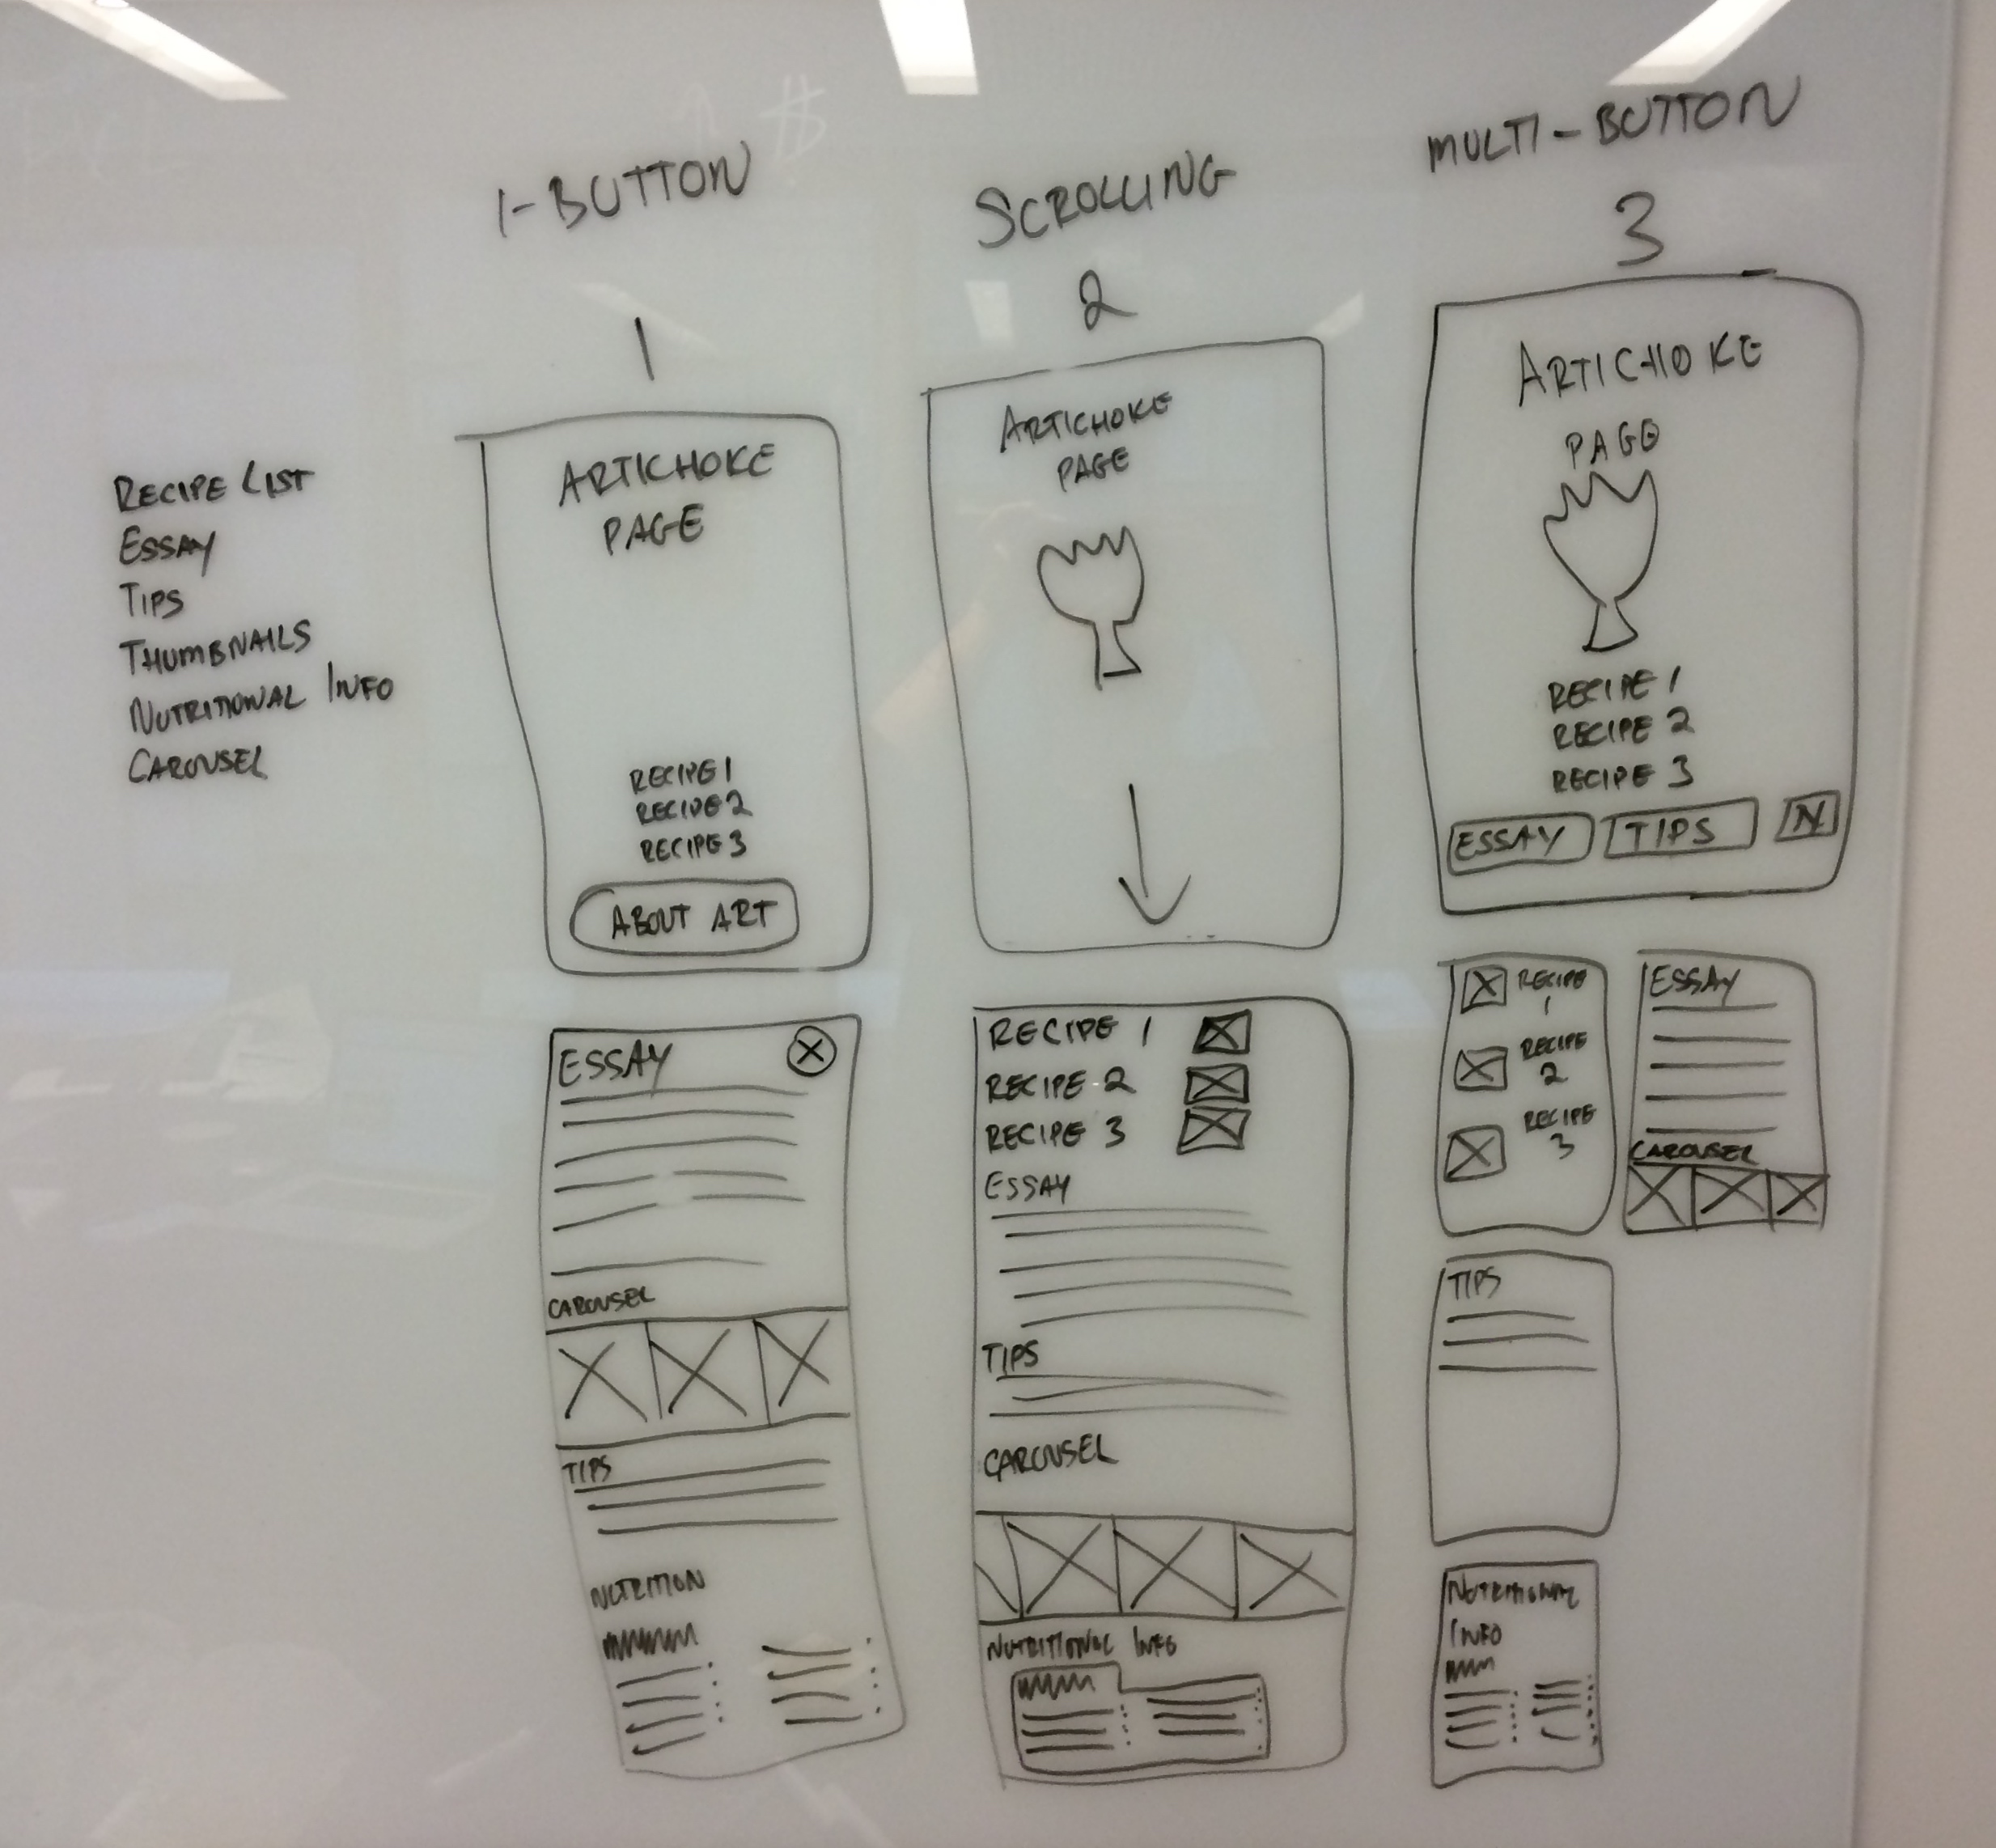 1-BUTTON
SCROLLING
MULTI-BUTTON
1
2
3
RECIPE LIST
ESSAY
TIPS
THUMBNAILS
NUTRITIONAL INFO
CAROUSEL
ARTICHOKE
PAGE
RECIPE 1
RECIPE 2
RECIPE 3
ABOUT ART
ESSAY
CAROUSEL
TIPS
NUTRITION
ARTICHOKE
PAGE
RECIPE 1
RECIPE 2
RECIPE 3
ESSAY
TIPS
CAROUSEL
NUTRITIONAL INFO
ARTICHOKE
PAGE
RECIPE 1
RECIPE 2
RECIPE 3
ESSAY TIPS N
RECIPE
1
RECIPE
2
RECIPE
3
ESSAY
CAROUSEL
TIPS
NUTRITIONAL
INFO